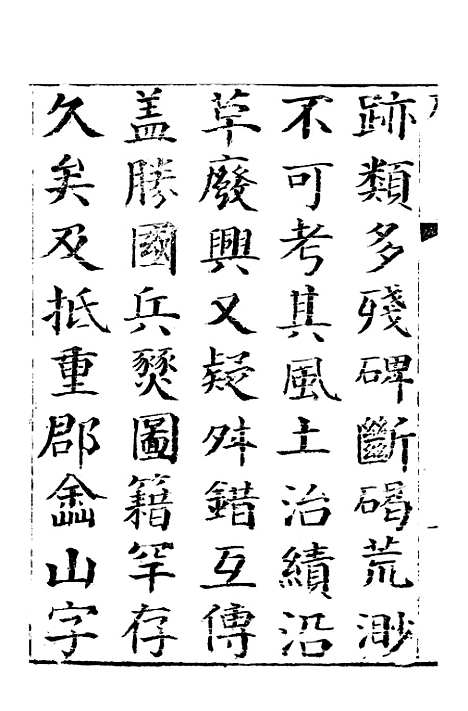 跡類多殘碑斷碣荒渺
不可考其風土治績沿
革廢興又疑舛錯互傳
盖勝國兵燹圖籍罕存
久矣及抵重郡嵞山字